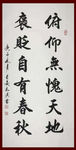 俯仰無愧天地
褒貶自有春秋